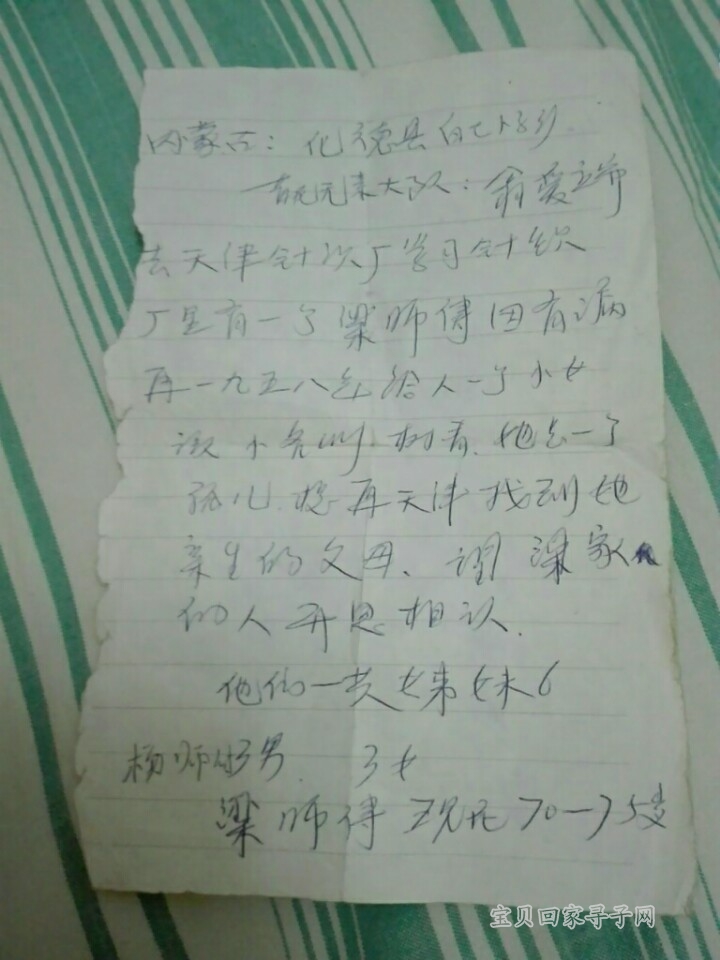 内蒙古：化德县白土卜子乡
大队：翁爱
去天津针织厂学习针织
厂里有一个梁师傅因有病
再一九五八年给人一个小女
孩小名叫树青.她是一个
孤儿.想再天津找到她
亲生的父母、谓梁家
的人开恩相认.
他们一共姊弟妹6
杨师 3男. 3女
梁师傅现在70-75岁
宝贝回家寻子网